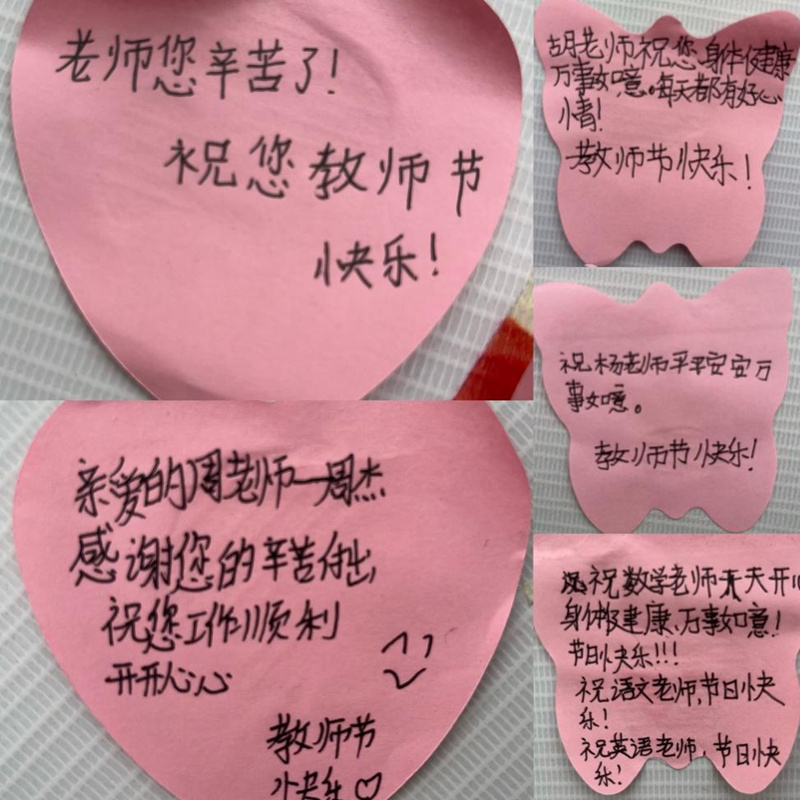 老师您辛苦了!
祝您教师节
快乐!
胡老师祝您身体健康
万事如意。每天都有好心
情!
教师节快乐!
祝杨老师平平安安万
事如意。
教师节快乐!
亲爱的周老师—周杰
感谢您的辛苦付出
祝您工作顺利
开开心心
教师节
快乐♡
祝数学老师天天开心
身体健康、万事如意!
节日快乐!!!
祝语文老师,节日快
乐!
祝英语老师,节日快
乐!